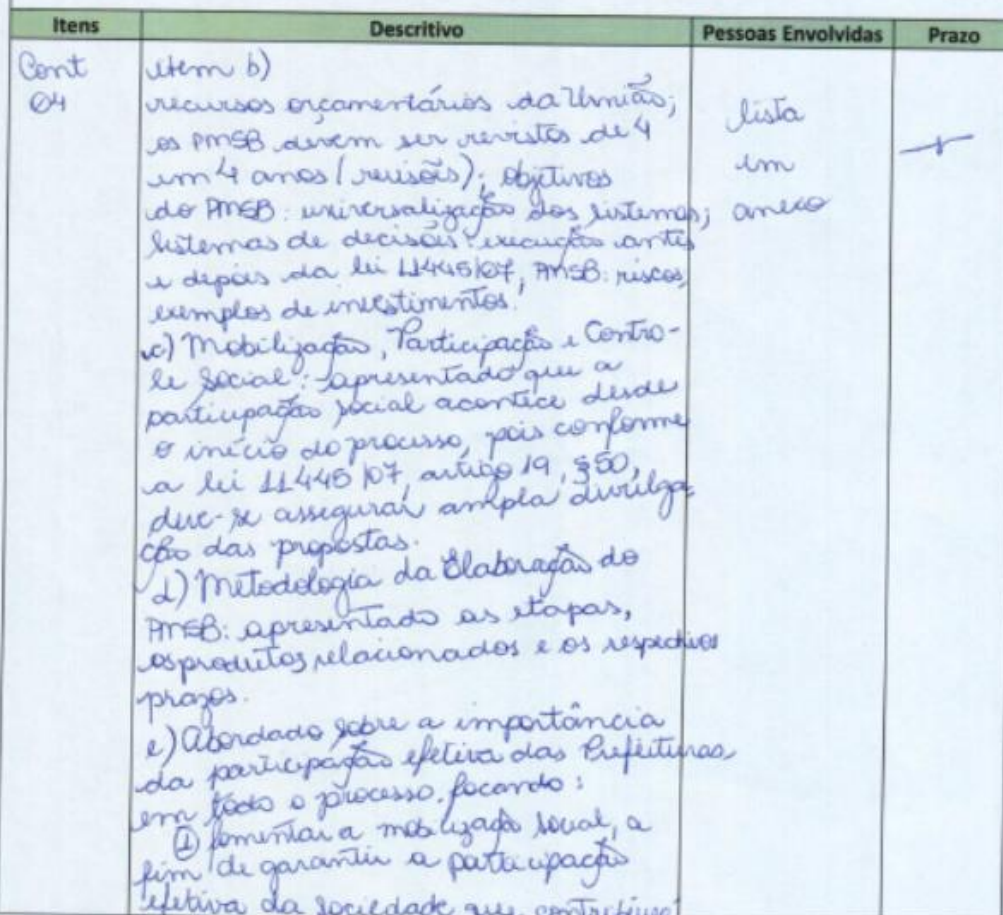 Itens Descritivo Pessoas Envolvidas Prazo
Cont item b)
04 recursos orçamentários da União; lista
os PMSB devem ser revistos de 4 em
em 4 anos (revisões); objetivos
do PMSB: universalização dos sistemas; anexo
sistemas de decisões: execução antes
e depois da lei 11445/07, PMSB: riscos,
exemplos de investimentos.
c) Mobilização, Participação e Contro-
le Social: apresentado que a
participação social acontece desde
o início do processo, pois conforme
a lei 11445/07, artigo 19, §50,
deve-se assegurar ampla divulga-
ção das propostas.
d) Metodologia da Elaboração do
PMSB: apresentado as etapas,
os produtos relacionados e os respectivos
prazos.
e) Abordado sobre a importância
da participação efetiva das Prefeituras
em todo o processo, focando:
① fomentar a mobilização social, a
fim de garantir a participação
efetiva da sociedade que